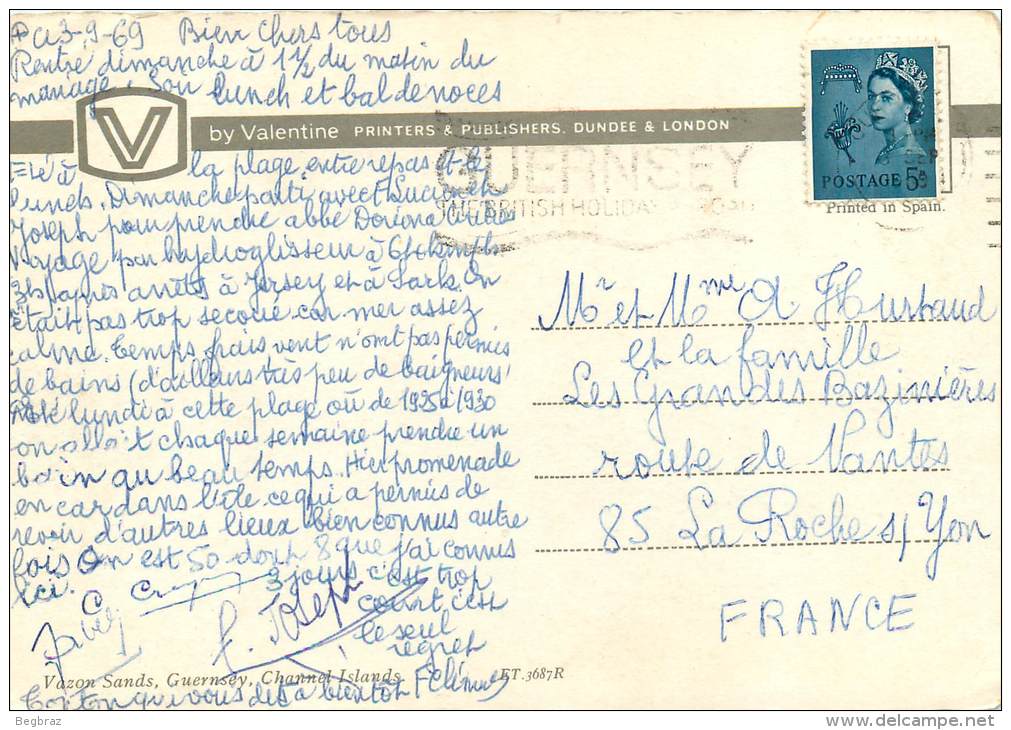 3-9-69 Bien Chers tous
Rentré dimanche à 1 1/2 du matin du
mariage. Son lunch et bal de noces
V
by Valentine PRINTERS & PUBLISHERS. DUNDEE & LONDON
été à la plage entre repas et le
lunch. Dimanche parti avec Lucien et
Joseph pour prendre abbé
Voyage par hydroglisseur à
3h après arrêts à Jersey et à Sark. On
était pas trop secoué car mer assez
calme. Temps frais vent n'ont pas permis
de bains (d'ailleurs très peu de baigneurs)
lundi à cette plage où de 1925 à 1930
on allait chaque semaine prendre un
bain au beau temps. Hier promenade
en car dans l'île ce qui a permis de
revoir d'autres lieux bien connus autre
fois On est 50 dont 8 que j'ai connus
ici.
3 jours c'est trop
court c'est
le seul
regret
f. Joseph
Vazon Sands, Guernsey, Channel Islands. ET.3687R
Tonton qui vous dit à bientôt
GUERNSEY
THE BRITISH HOLIDAY
SEP
POSTAGE 5D
Printed in Spain.
Mr et Mme A Hurtaud
et la famille
Les Grandes Bazinières
route de Nantes
85 La Roche s/ Yon
FRANCE
Begbraz
www.delcampe.net